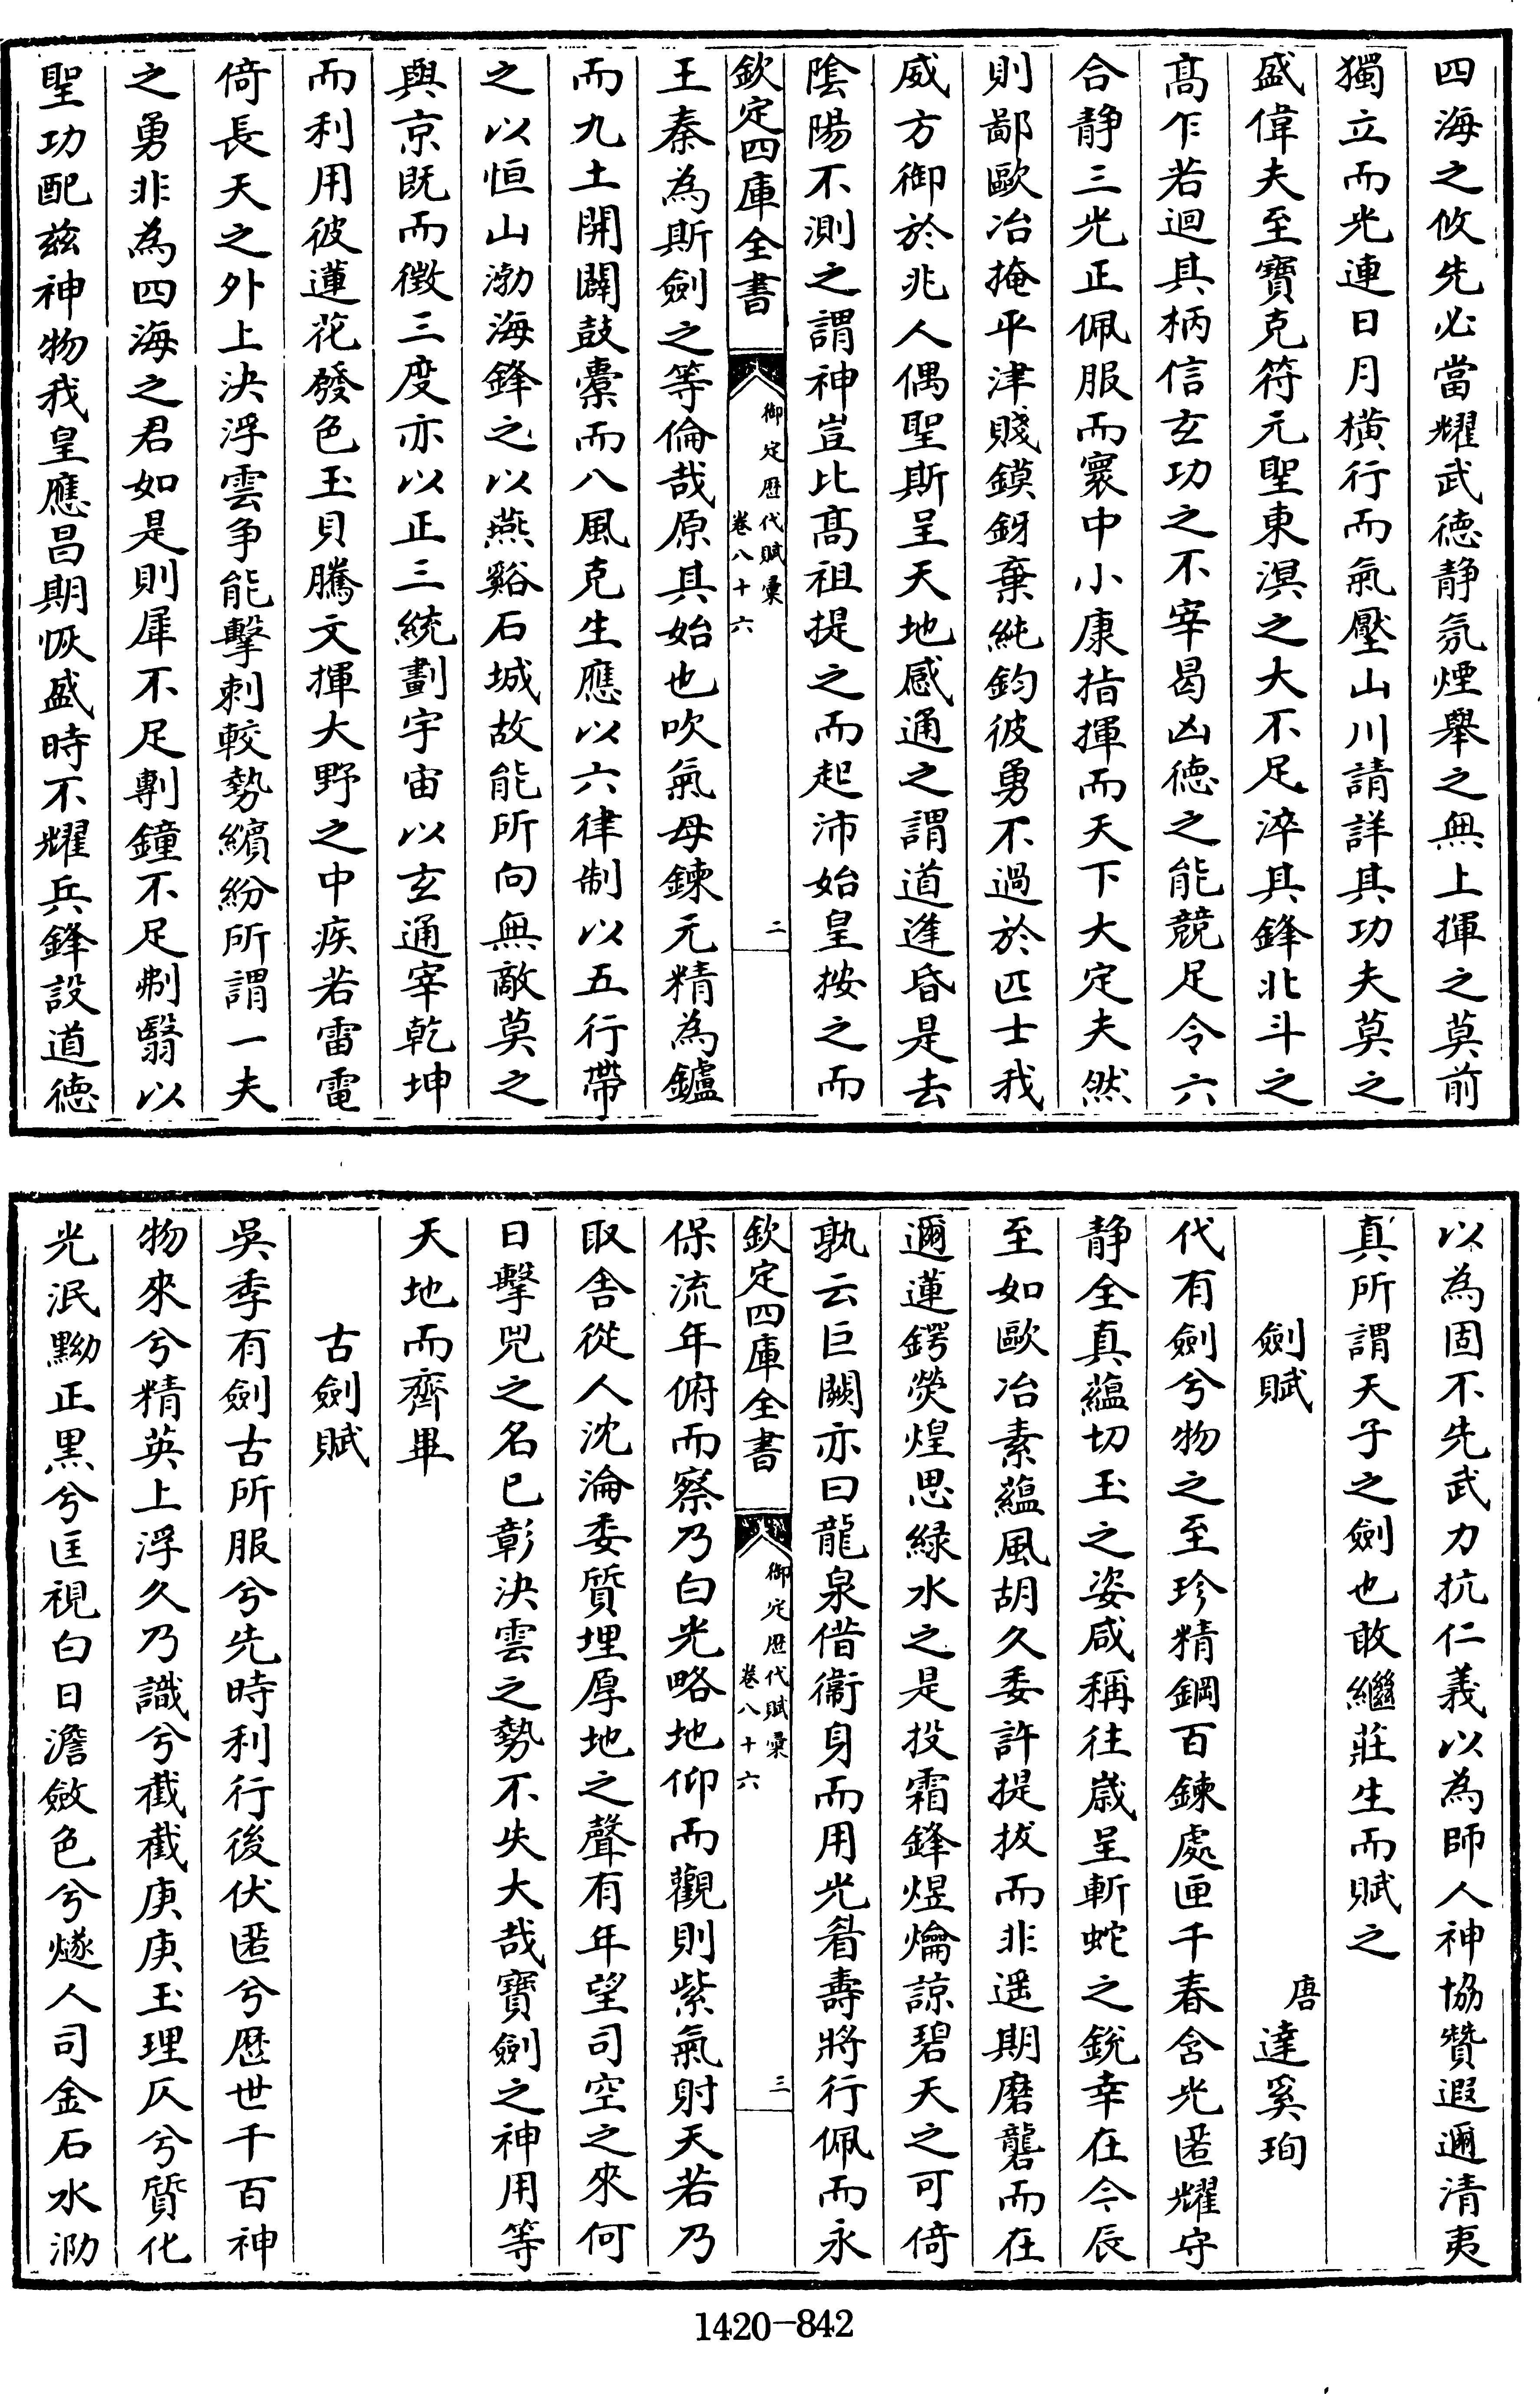 四海之攸先必當耀武德静氛煙舉之無上揮之莫前
獨立而光連日月横行而氣壓山川請詳其功夫莫之
盛偉夫至寶克符元聖東溟之大不足淬其鋒北斗之
髙乍若迴其柄信玄功之不宰曷凶徳之能競足令六
合静三光正佩服而寰中小康指揮而天下大定夫然
則鄙歐冶掩平津賤鏌釾棄純鈞彼勇不過於匹士我
威方御於兆人偶聖斯呈天地感通之謂道逢昏是去
陰陽不測之謂神豈比髙祖提之而起沛始皇按之而
欽定四庫全書
御定歴代賦彚
卷八十六
二
王秦為斯劍之等倫哉原其始也吹氣母鍊元精為鑪
而九土開闢鼓橐而八風克生應以六律制以五行帶
之以恒山渤海鋒之以燕谿石城故能所向無敵莫之
與京既而徵三度亦以正三統劃宇宙以玄通宰乾坤
而利用彼蓮花發色玉貝騰文揮大野之中疾若雷電
倚長天之外上決浮雲争能擊刺較勢繽紛所謂一夫
之勇非為四海之君如是則犀不足剸鐘不足刜翳以
聖功配兹神物我皇應昌期恢盛時不耀兵鋒設道德
以為固不先武力抗仁義以為師人神協贊遐邇清夷
真所謂天子之劍也敢繼莊生而賦之
劍賦
唐
達奚珣
代有劍兮物之至珍精鋼百鍊處匣千春含光匿耀守
静全真藴切玉之姿咸稱往嵗呈斬蛇之銳幸在今辰
至如歐冶素藴風胡久委許提拔而非遥期磨礱而在
邇蓮鍔熒煌思緑水之是投霜鋒煜爚諒碧天之可倚
孰云巨闕亦曰龍泉借衞身而用光看壽將行佩而永
欽定四庫全書
御定歴代賦彚
卷八十六
三
保流年俯而察乃白光略地仰而觀則紫氣射天若乃
取舍從人沈淪委質埋厚地之聲有年望司空之來何
日擊兕之名已彰決雲之勢不失大哉寶劍之神用等
天地而齊畢
古劍賦
吳季有劍古所服兮先時利行後伏匿兮歴世千百神
物來兮精英上浮久乃識兮截截庚庚玉理仄兮質化
光泯黝正黒兮匡視白日澹斂色兮燧人司金石水泐
1420-842